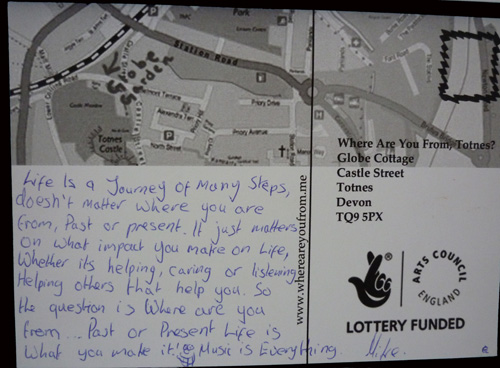 Park
Station Road
Globe
Garden
Terrace
Priory Drive
Alexandra Terr
P
Priory Avenue
North Street
Totnes
Castle
Life Is a Journey of Many Steps,
doesn't matter where you are
from, Past or present. It just matters
on what impact you make on Life,
Whether its helping, caring or listening
Helping others that help you. So
the question is Where are you
from... Past or Present Life is
What you make it! @ Music is Everything. Mike.
www.whereareyoufrom.me
Where Are You From, Totnes?
Globe Cottage
Castle Street
Totnes
Devon
TQ9 5PX
ARTS COUNCIL
ENGLAND
LOTTERY FUNDED